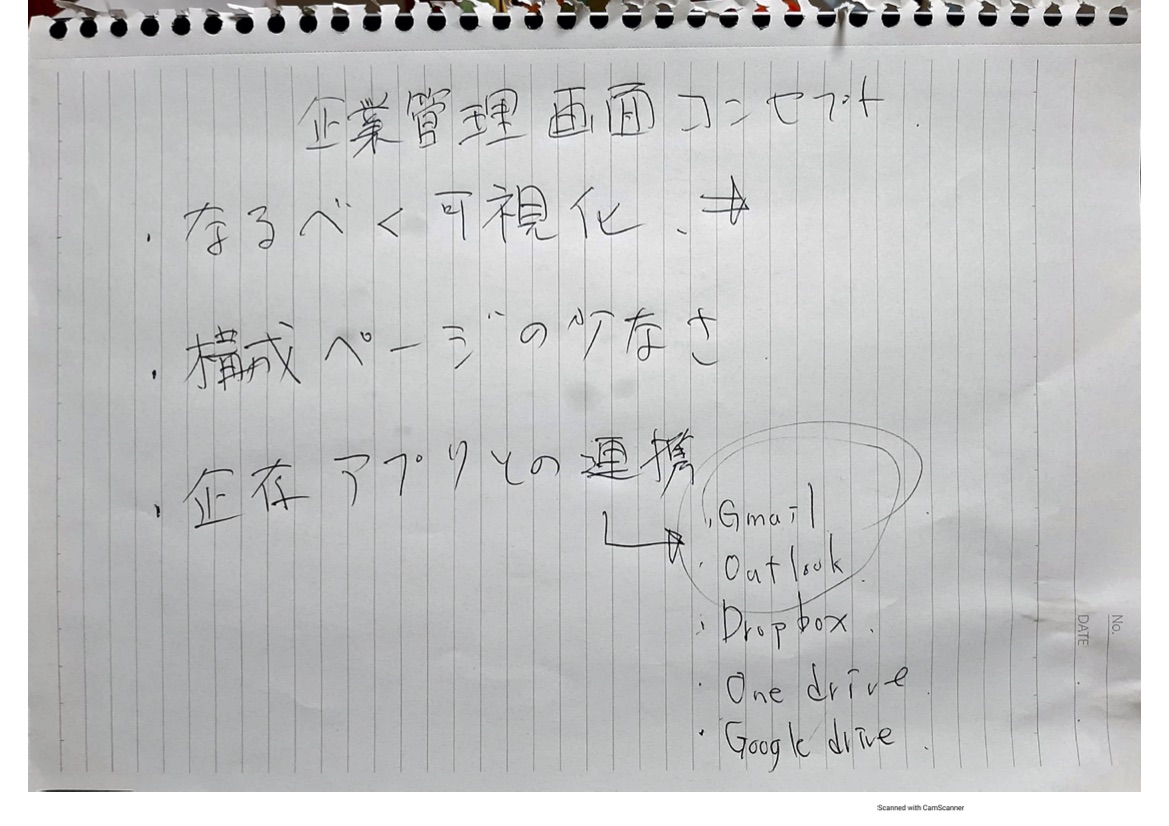 企業管理画面コンセプト
・なるべく可視化、⇒
・構成ページの少なさ
・企存アプリとの連携
・Gmail
・Outlook
・Dropbox
・One drive
・Google drive
No.
DATE
Scanned with CamScanner